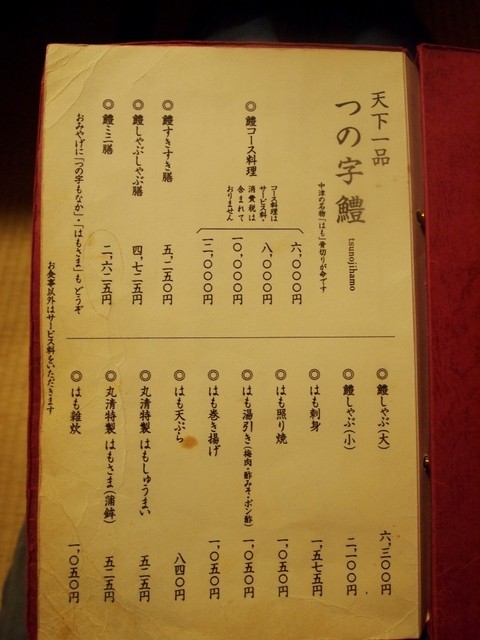 天下一品
つの字鱧
tsunojihamo
中津の名物「はも」骨切りが命です
◎鱧コース料理
コース料理は
サービス料・
消費税は
含まれて
おりません
六、〇〇〇円
八、〇〇〇円
一〇、〇〇〇円
一二、〇〇〇円
◎鱧すきすき膳 五、二五〇円
◎鱧しゃぶしゃぶ膳 四、七二五円
◎鱧ミニ膳 二、六二五円
おみやげに「つの字もなか」・「はもさま」もどうぞ
お食事以外はサービス料をいただきます
◎鱧しゃぶ(大) 六、三〇〇円
◎鱧しゃぶ(小) 二、一〇〇円
◎はも刺身 一、五七五円
◎はも照り焼 一、〇五〇円
◎はも湯引き(梅肉・酢みそ・ポン酢) 一、〇五〇円
◎はも巻き揚げ 一、〇五〇円
◎はも天ぷら 八四〇円
◎丸清特製 はもしゅうまい 五二五円
◎丸清特製 はもさま(蒲鉾) 五二五円
◎はも雑炊 一、〇五〇円